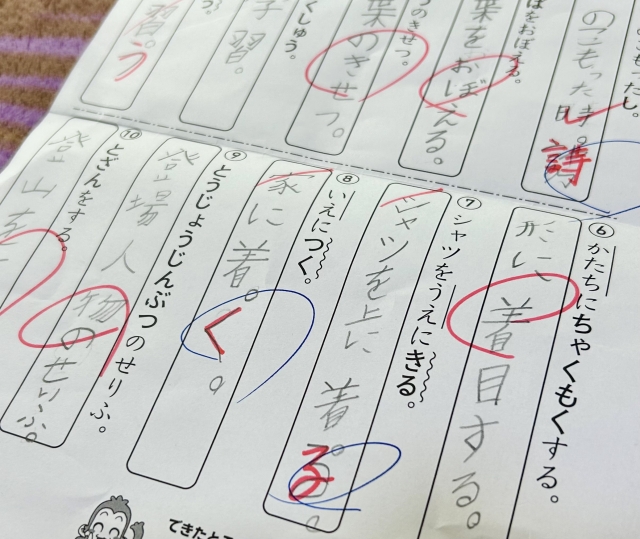 のこもった詩。
ばをおぼえる。
葉をおぼえる。
つのきせつ。
葉のきせつ。
くしゅう。
学習。
習う。
⑥ かたちにちゃくもくする。
形に着目する。
⑦ シャツをうえにきる。
シャツを上に着る。
⑧ いえにつく。
家に着く。
⑨ とうじょうじんぶつのせりふ。
登場人物のせりふ。
⑩ とざんをする。
登山を
できたところ